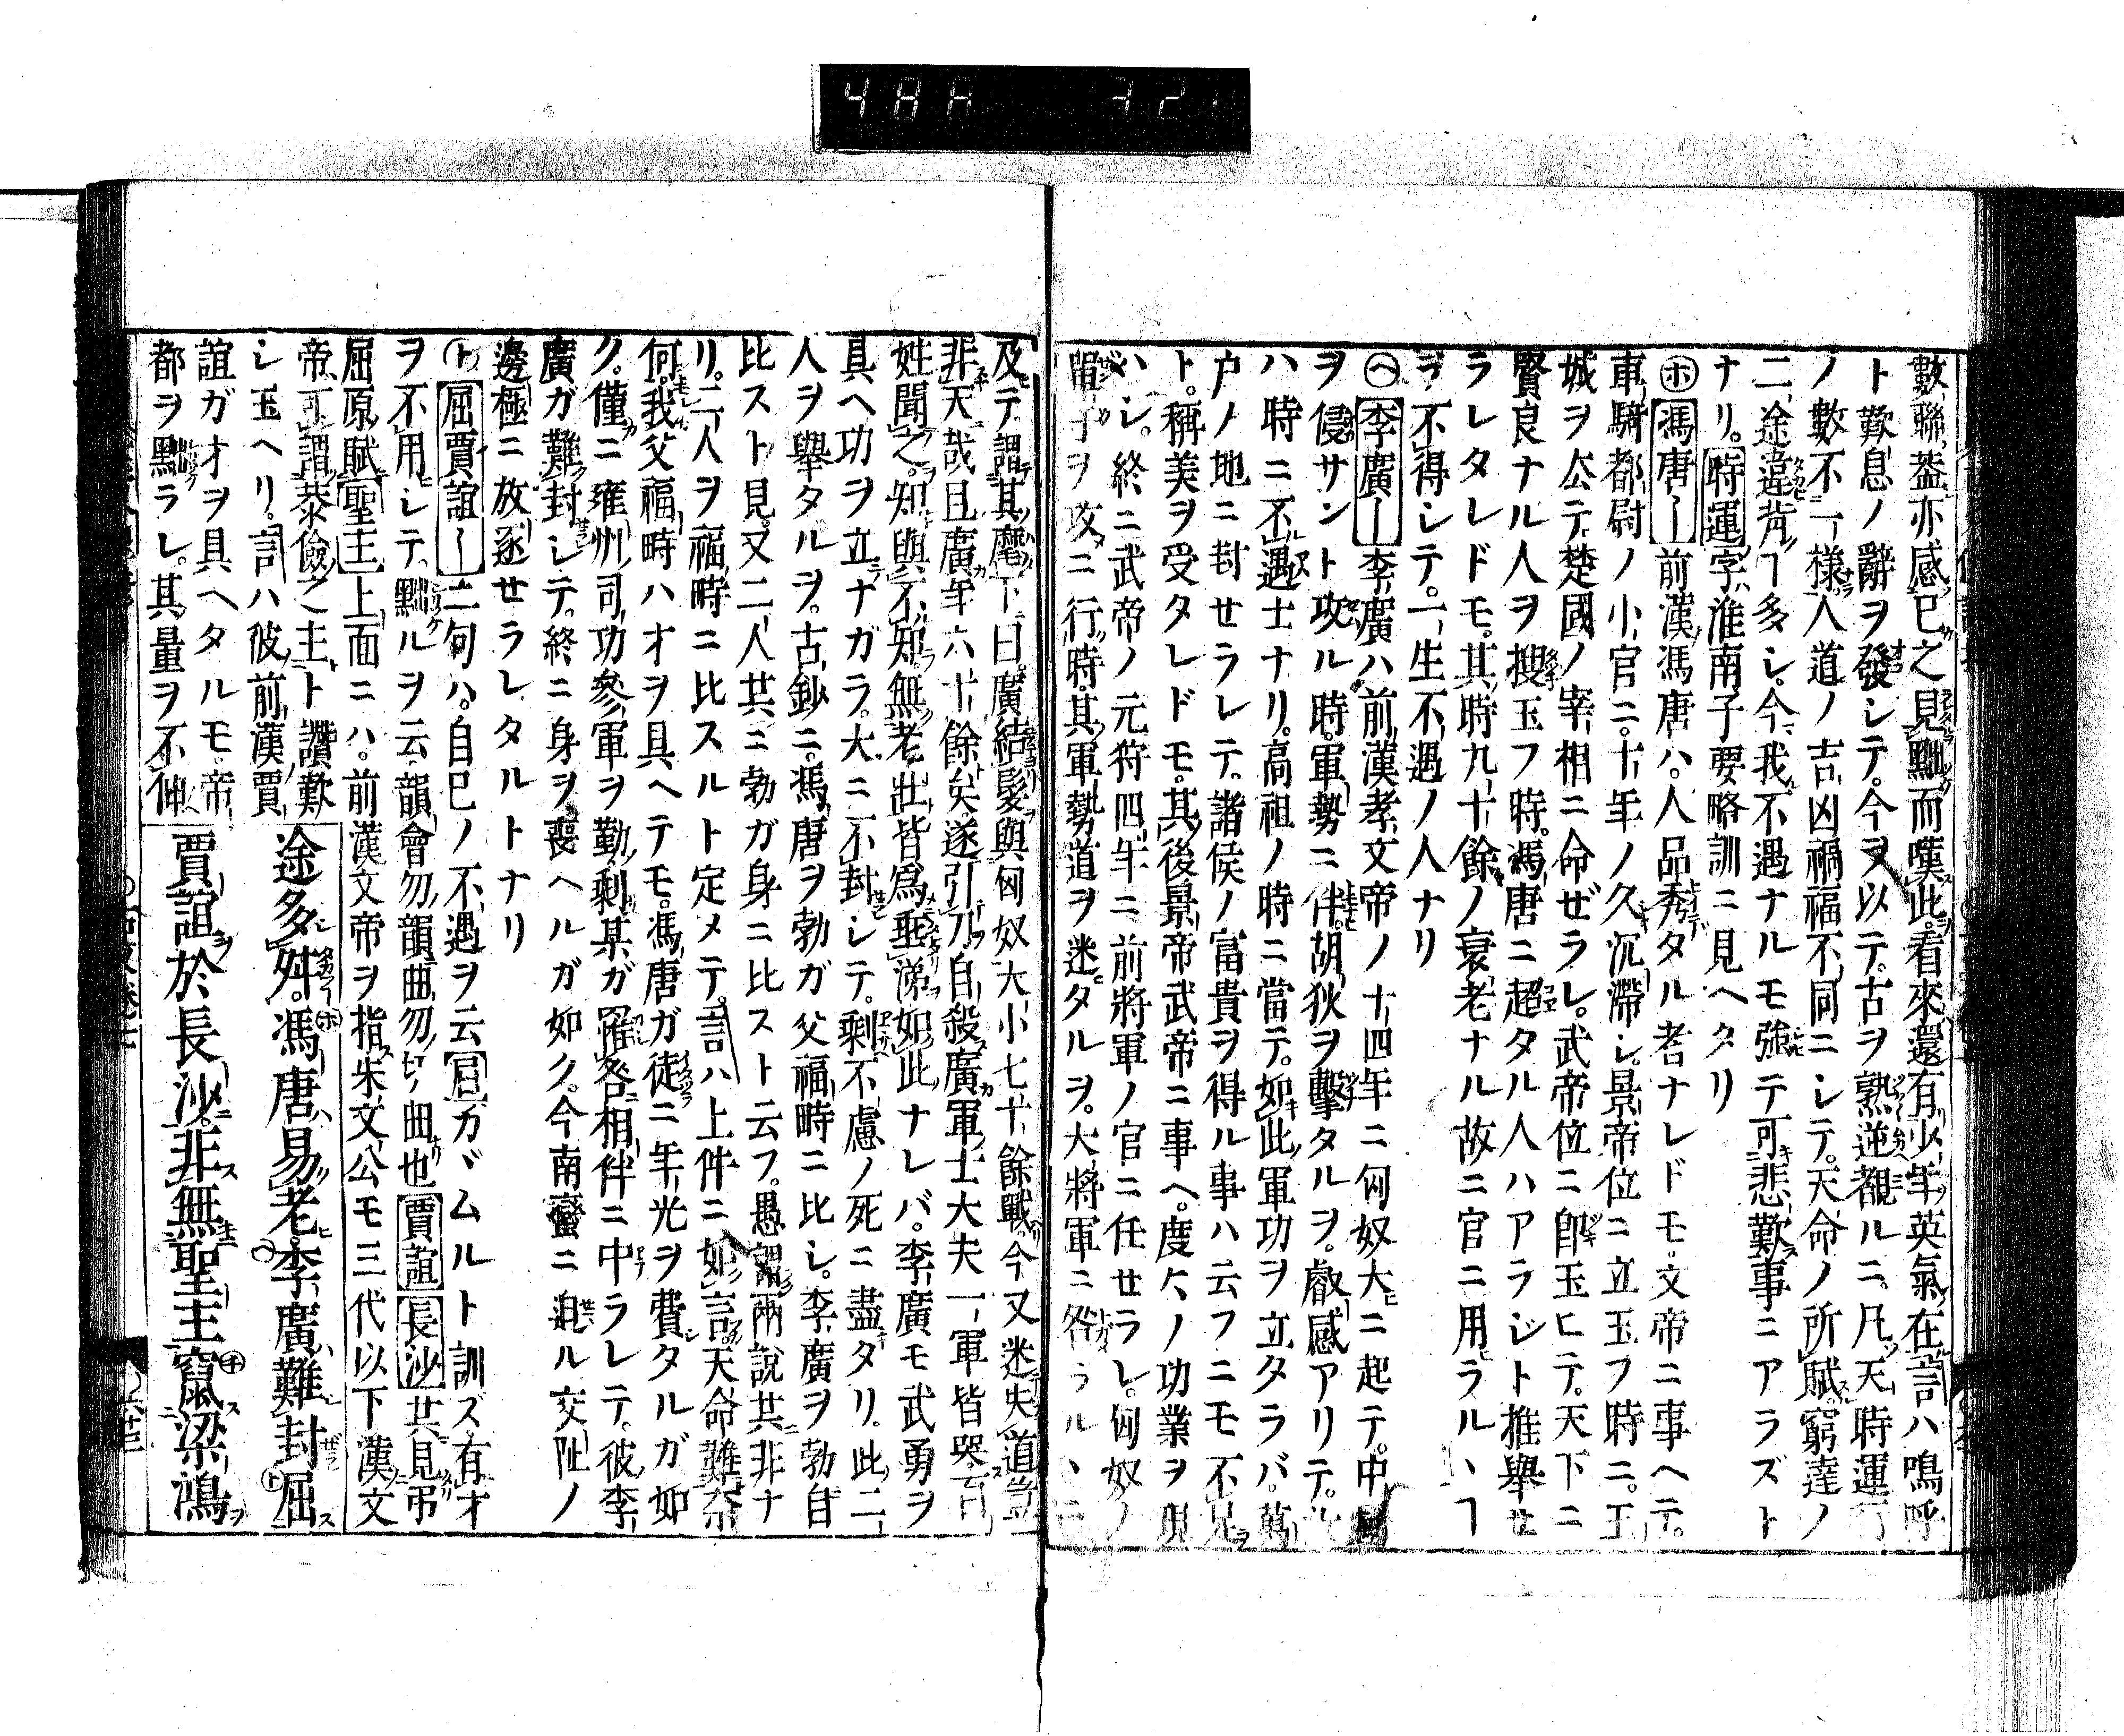 488 32
數聯蓋亦感已之見黜而嘆此看來還有少年英氣在言ハ嗚呼
ト歎息ノ辭ヲ發シテ。今ヲ以テ。古ヲ熟逆覩ルニ。凡天時運行
ノ數不一樣人道ノ吉凶禍福不同ニシテ。天命ノ所賦窮達ノ
二途違背ヿ多シ。今我不遇ナルモ強テ可悲歎事ニアラズト
ナリ。時運字淮南子要略訓ニ見ヘタリ
㋭馮唐〡前漢馮唐ハ。人品秀タル者ナレドモ。文帝ニ事ヘテ。
車騎都尉ノ小官ニ。十年ノ久沉滯シ。景帝位ニ立玉フ時ニ。王
城ヲ公テ。楚國ノ宰相ニ命ゼラレ。武帝位ニ卽玉ヒテ。天下ニ
賢良ナル人ヲ搜玉フ時。馮唐ニ超タル人ハアラジト推舉せ
ラレタレドモ。其時九十餘ノ衰老ナル故ニ官ニ用ラル丶ヿ
ヲ不得シテ。一生不遇ノ人ナリ
㋬李廣〡李廣ハ前漢孝文帝ノ十四年ニ匈奴大ニ起テ。中國
ヲ侵サント攻ル時。軍勢ニ伴。胡狄ヲ擊タルヲ。叡感アリテ。
ハ時ニ不遇士ナリ。高祖ノ時ニ當テ。如此軍功ヲ立タラバ。萬
户ノ地ニ封セラレテ。諸侯ノ富貴ヲ得ル事ハ云フニモ不足
ト。稱美ヲ受タレドモ。其後景帝武帝ニ事ヘ。度々ノ功業ヲ現
ハシ。終ニ武帝ノ元狩四年ニ前將軍ノ官ニ任セラレ。匈奴ノ
單于ヲ攻ニ行時。其軍勢道ヲ迷タルヲ。大將軍ニ咎ラル丶ニ
及テ。謂其麾下曰。廣結髮與匈奴大小七十餘戰。今又迷失道豈
非天哉且廣年六十餘矣。遂引刀自殺廣軍士大夫一軍皆哭百
姓聞之。知與不知。無老壯皆爲垂涕如此ナレバ。李廣モ武勇ヲ
具ヘ功ヲ立ナガラ。大ニ不封シテ。剩不慮ノ死ニ盡タリ。此二
人ヲ舉タルヲ。古鈔ニ。馮唐ヲ勃ガ父福時ニ比シ。李廣ヲ勃自
比スト見。又二人共ニ勃ガ身ニ比スト云フ。愚謂兩說共非ナ
リ。二人ヲ福時ニ比スルト定メテ。言ハ上件ニ如言天命難奈
何。我父福時ハオヲ具ヘテモ。馮唐ガ徒ニ年光ヲ費タルガ如
ク。僅ニ雍州司功參軍ヲ勤剩某ガ罹咎相伴ニ中ラレテ。彼李
廣ガ難封シテ。終ニ身ヲ喪ヘルガ如ク。今南蠻ニ迫ル交阯ノ
邊極ニ放逐せラレタルトナリ
㋣屈賈誼〡二句ハ。自已ノ不遇ヲ云屈カヾムルト訓ズ有才
ヲ不用シテ。黜ルヲ云韻會勿韻曲勿切曲也賈誼長沙共見弔
屈原賦聖主上面ニハ。前漢文帝ヲ指朱文公モ三代以下漢文
帝可謂恭儉之主ト讚歎
シ玉ヘリ。言ハ彼前漢賈
誼ガオヲ具ヘタルモ帝
都ヲ黜ラレ。其量ヲ不伸
途多舛。馮唐易老李廣難封屈
賈誼於長沙。非無聖主竄梁鴻